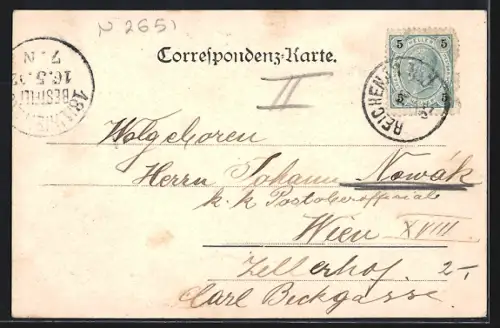 N 2651
Correspondenz-Karte.
II
5 HELLER 5
5 5
REICHEN
18/1 WIEN
BESTELLT
16.5.02
7.N
Wolgeboren
Herrn Johann Nowák
k. k. Postoberoffizial
Wien XVIII.
Zellerhof. 2-,
Carl Beckgasse